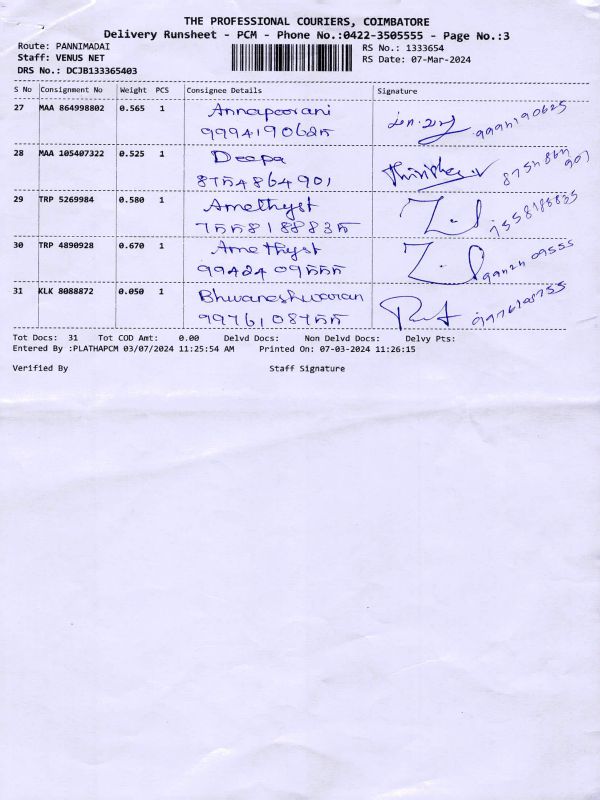 THE PROFESSIONAL COURIERS, COIMBATORE
Delivery Runsheet - PCM - Phone No.:0422-3505555 - Page No.:3
Route: PANNIMADAI RS No.: 1333654
Staff: VENUS NET RS Date: 07-Mar-2024
DRS No.: DCJB133365403
S No Consignment No Weight PCS Consignee Details Signature
27 MAA 864998802 0.565 1 Annapoorani
9994190625 9994190625
28 MAA 105407322 0.525 1 Deepa
8754864901 8754864901
29 TRP 5269984 0.580 1 Amethyst
7558188835 7558188835
30 TRP 4890928 0.670 1 Amethyst
9942409555 9942409555
31 KLK 8088872 0.050 1 Bhuvaneshwaran
9976108755 9976108755
Tot Docs: 31 Tot COD Amt: 0.00 Delvd Docs: Non Delvd Docs: Delvy Pts:
Entered By :PLATHAPCM 03/07/2024 11:25:54 AM Printed On: 07-03-2024 11:26:15
Verified By Staff Signature